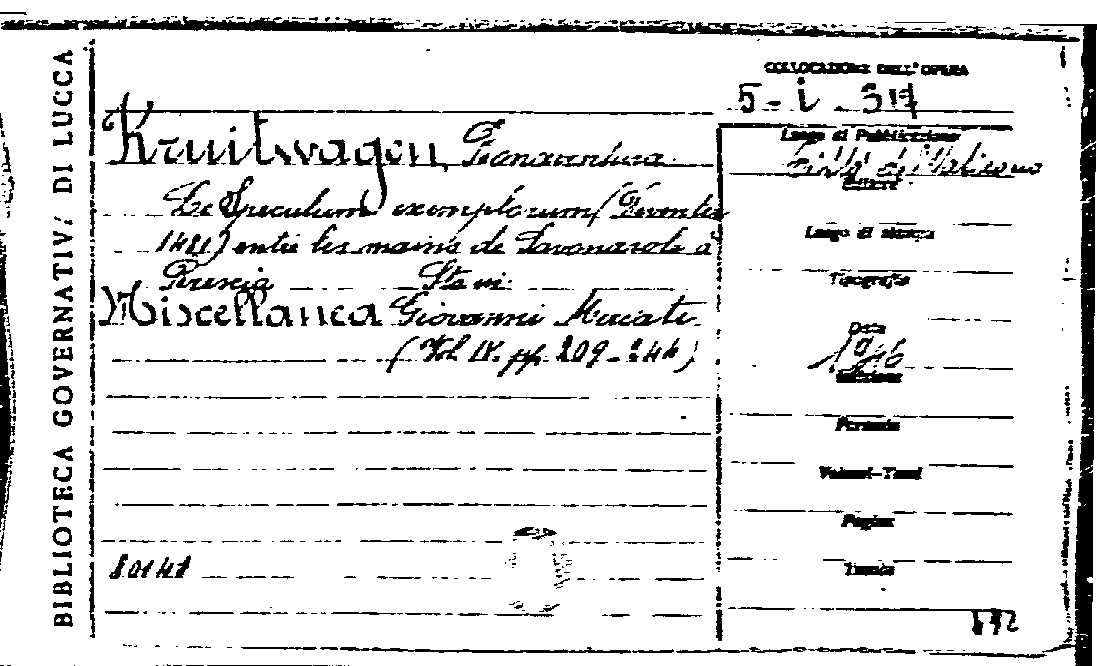 BIBLIOTECA GOVERNATIVA DI LUCCA
COLLOCAZIONE DELL'OPERA
5 - i - 317
Kruitwagen Bonaventura
Le Speculum exemplorum (Deventer
1481) entre les mains de Savonarole à
Brescia
Miscellanea Giovanni Mercati
(Vol. IV. pp. 209-244)
80141
Luogo di Pubblicazione
Città del Vaticano
Editore
Luogo di stampa
Tipografia
Data
1946
Edizione
Formato
Volumi-Tomi
Pagine
Tavole